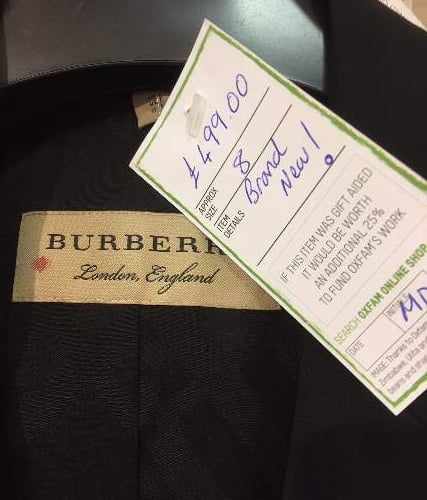 £499.00
APPROX
SIZE
8
ITEM
DETAILS
Brand
New!
IF THIS ITEM WAS GIFT AIDED
IT WOULD BE WORTH
AN ADDITIONAL 25%
TO FUND OXFAM'S WORK
SEARCH OXFAM ONLINE SHOP
DATE
MADE: Thanks to Oxfam
Zimbabwe,
beans and
BURBER
London, England